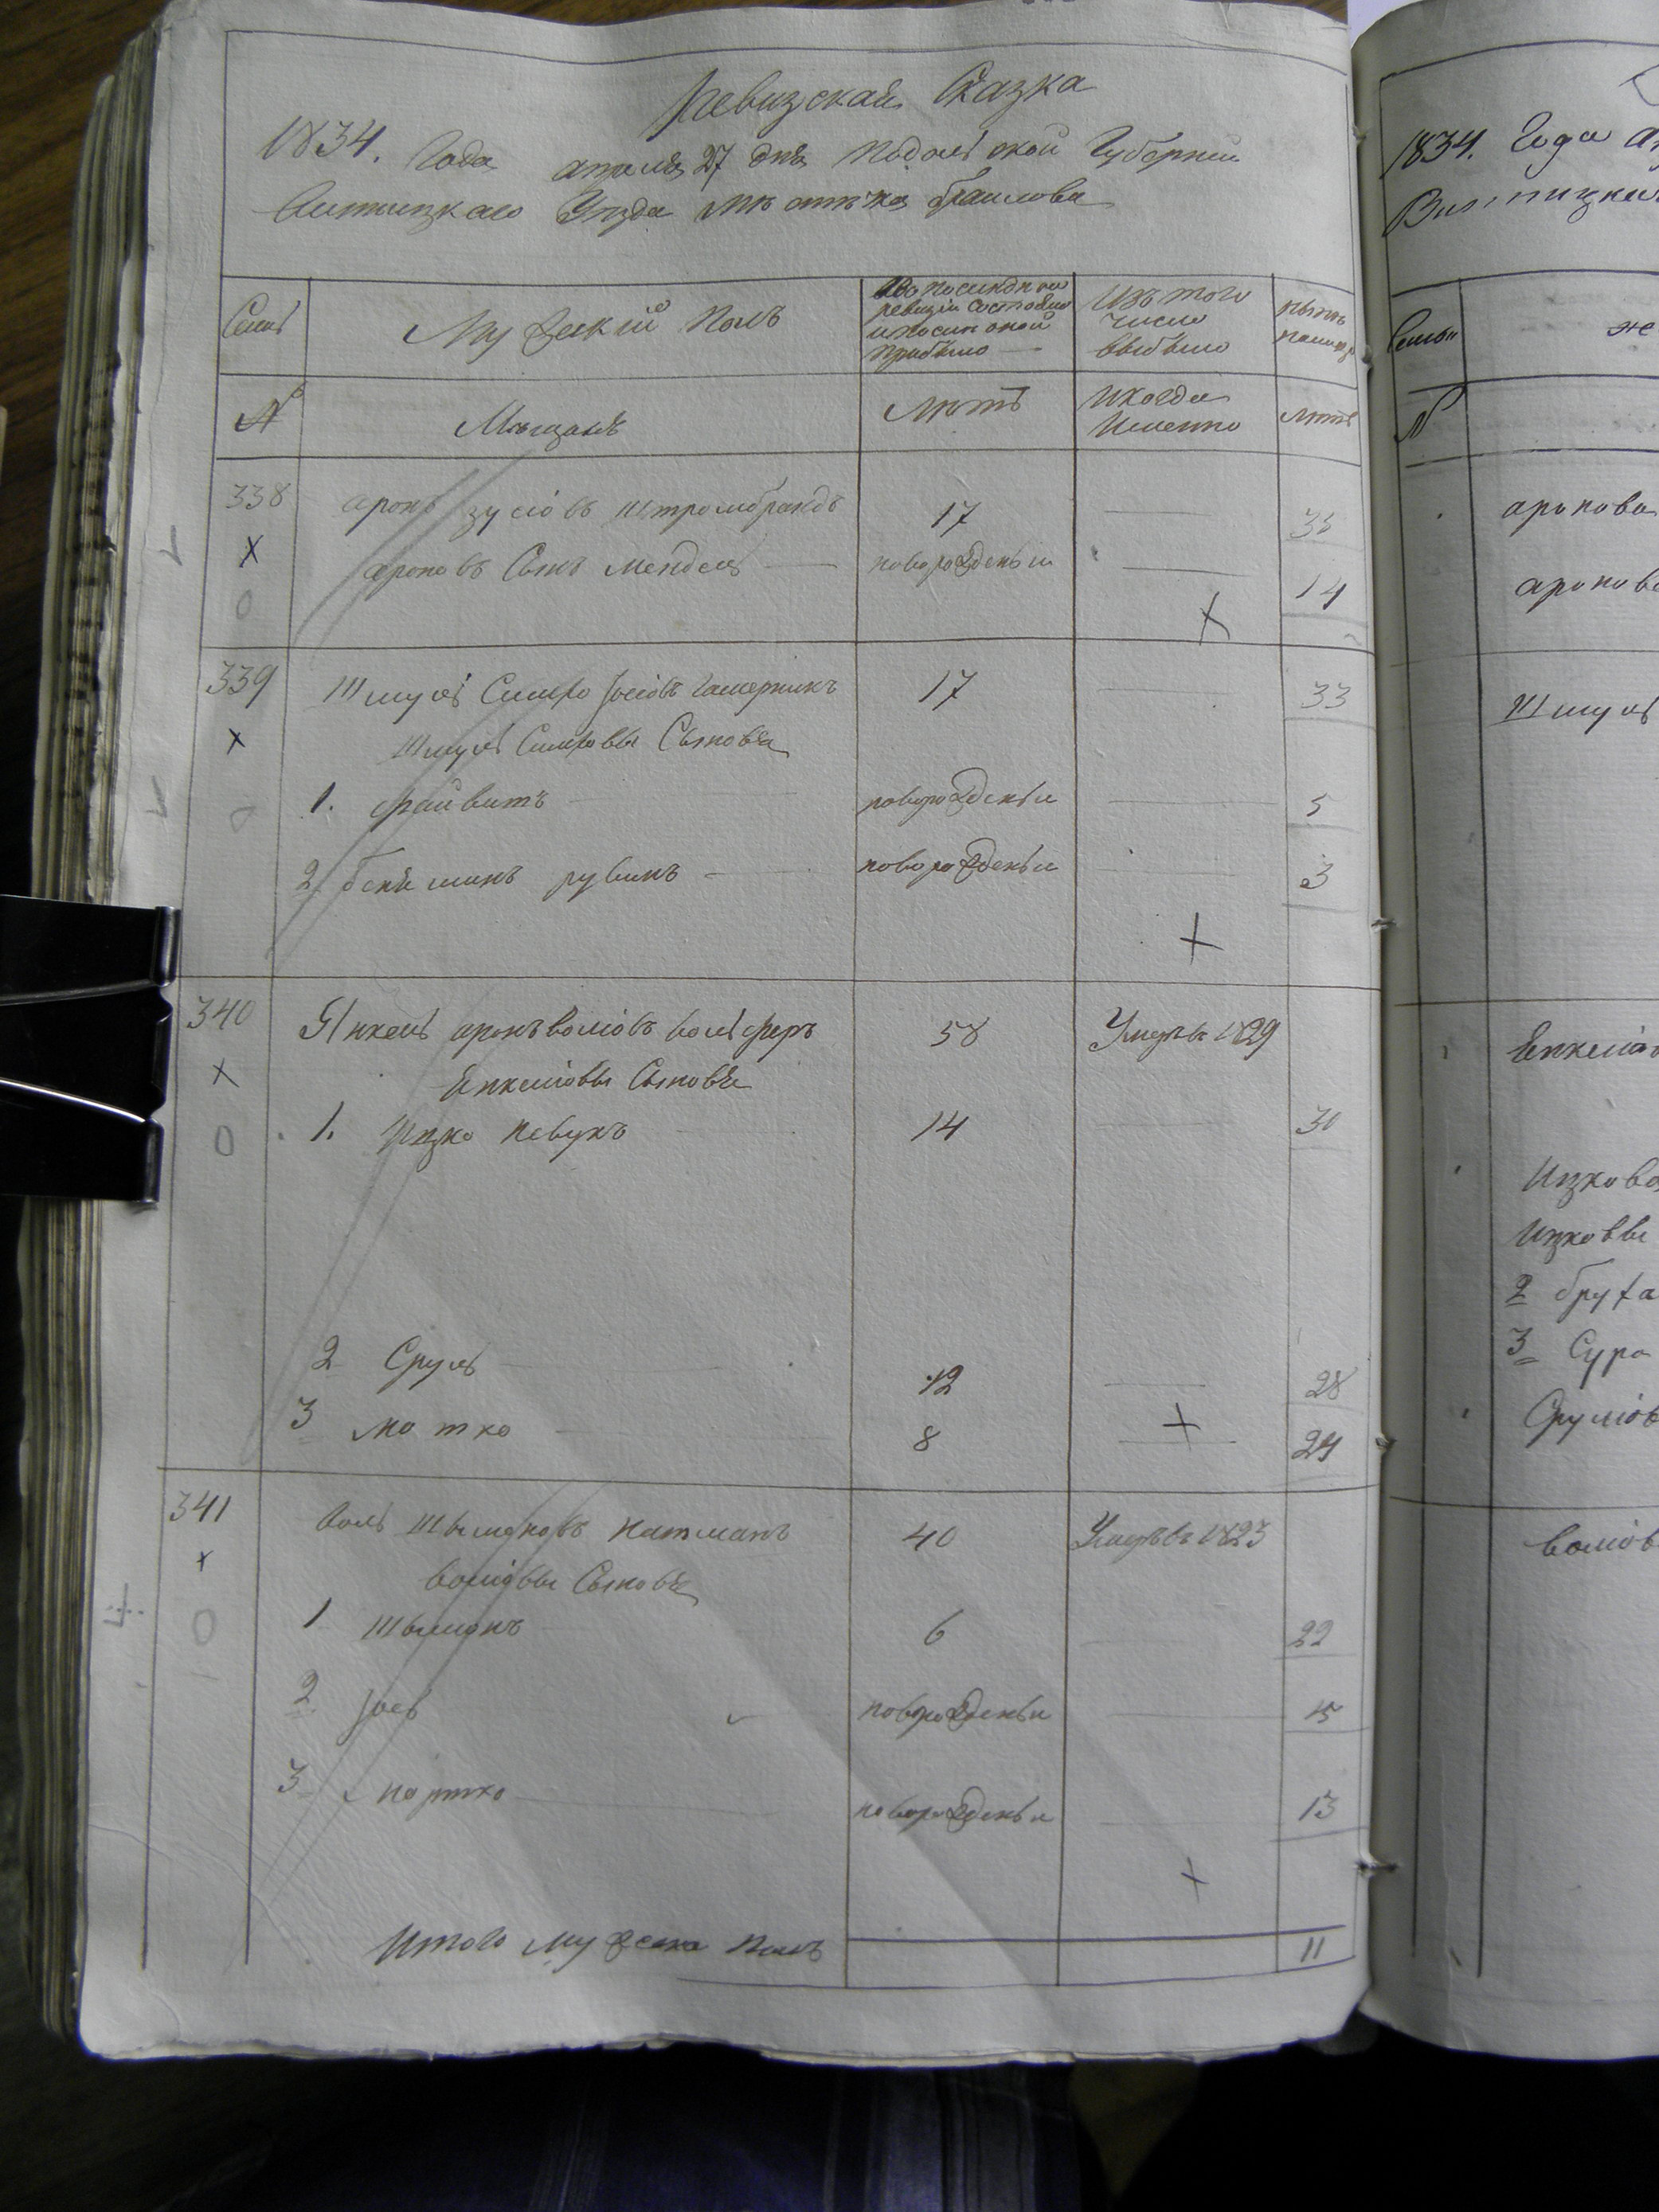 Ревизская Сказка
1834. Года апреля 27 дня Подольской Губернии
Винницкаго Уезда местечка браилова
Семьи
Мужеский полъ
По последней ревизіи состояло и после оной прибыло
Изъ того числа выбыло
ныне на лицо
№
Мещанъ
Летъ
Когда Именно
Летъ
338 аронъ зусіовъ штромбрандъ 17 33
ароновъ Сынъ мендель новорожденый 14
339 Шмуль Симхо Іосіовъ 17 33
Шмуль Симховы Сыновья
1. файвишъ новорожденые 5
2 бениминъ рувинъ новорожденые 3
340 Янкель аронъ воліовъ вольферъ 58 Умеръ въ 1829
Енкеліовы Сыновья
1. Ицко 14 30
2 Сруль 12 28
3 мотко 8 24
341 Воль Шымоновъ натманъ 40 Умеръ въ 1823
воліовы Сыновья
1 Шымонъ 6 22
2 Іось новорожденые 15
3 новорожденые 13
Итого мужеска полъ 11
1834. Года ап
Винницкаго
Семьи
же
№
аронова
аронова
Шмуль
Енкеліов
Ицкова
Ицковы
2 бруха
3 Сура
Сруліов
воліов